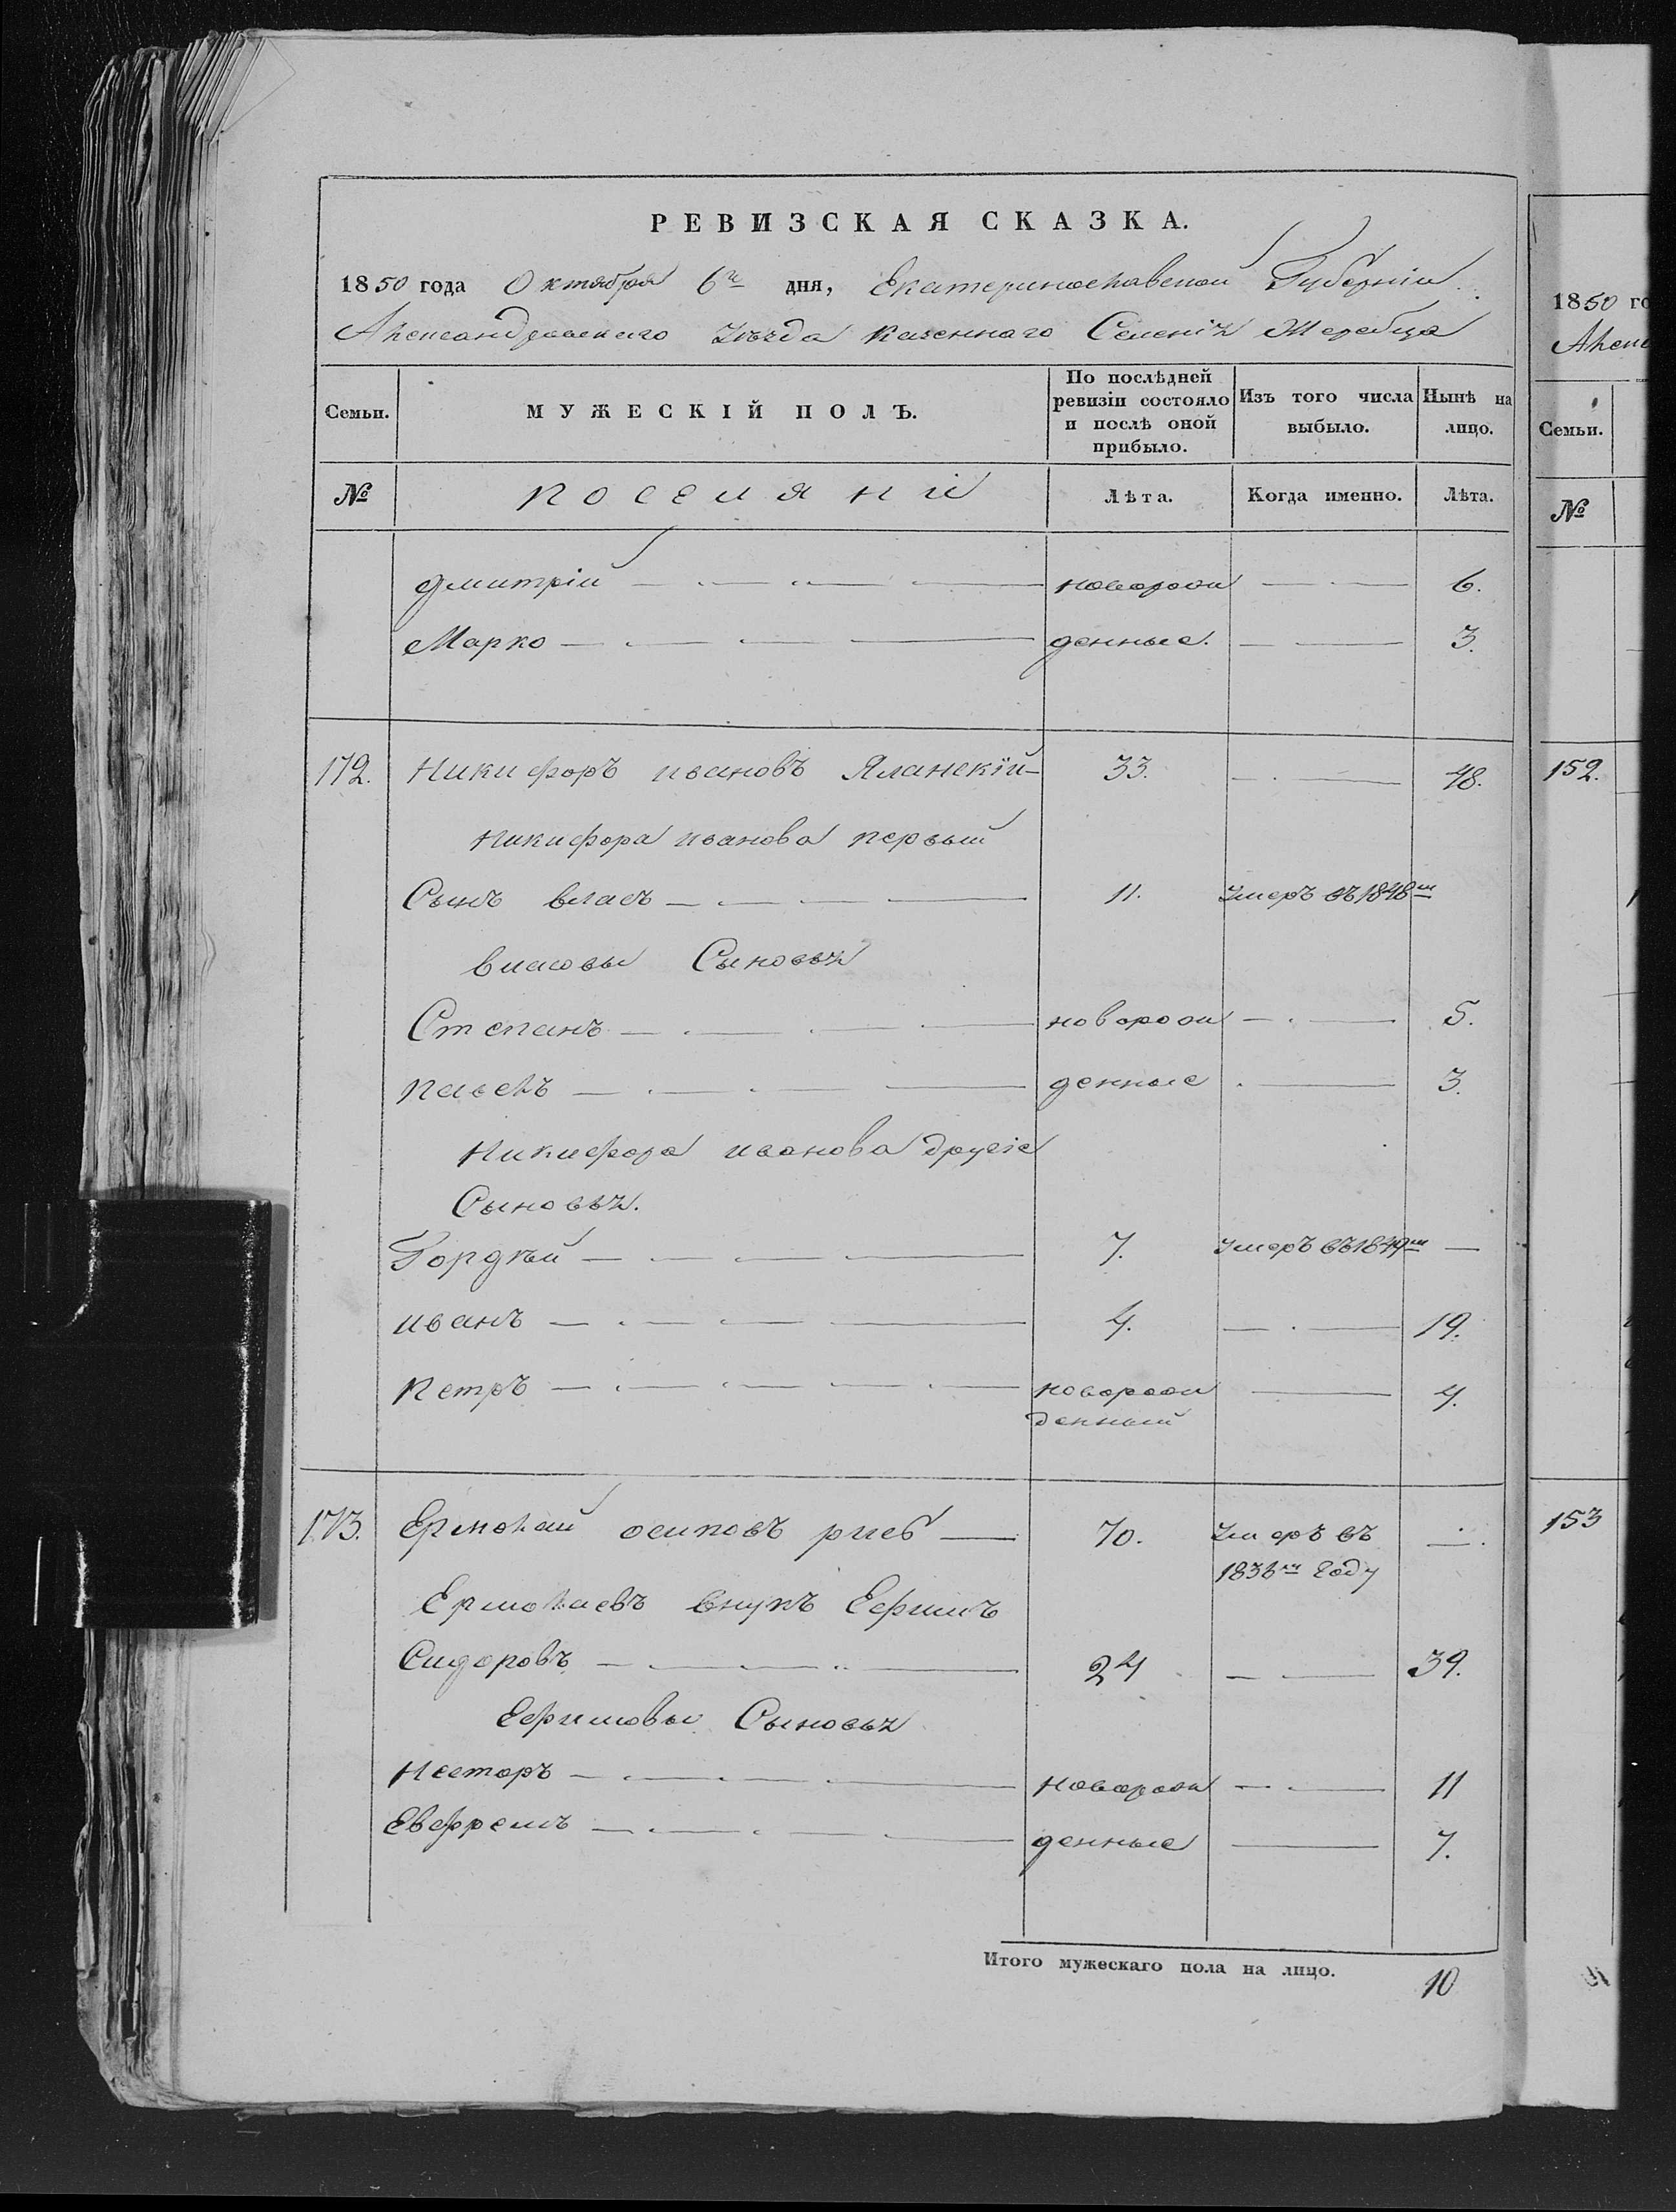 РЕВИЗСКАЯ СКАЗКА.
1850 года Октября 6го дня, Екатеринославской Губерніи
Александровскаго Уѣзда казеннаго Селенія Жеребца
Семьи.
МУЖЕСКІЙ ПОЛЪ.
По послѣдней ревизіи состояло и послѣ оной прибыло.
Изъ того числа выбыло.
Нынѣ на лицо.
№
поселяній
Лѣта.
Когда именно.
Лѣта.
Дмитрій новорож 6.
Марко денные. 3.
172. Никифоръ ивановъ Яланскій 33. 48.
Никифора иванова первый
Сынъ власъ 11. Умеръ въ 1848м
власовы Сыновья
Степанъ новорож 5.
павелъ денные 3.
Никифора иванова другіе
Сыновья.
Гордѣй 7. Умеръ въ 1849м
иванъ 4. 19.
петръ новорож 4.
денный
173. Ермолай осиповъ 70. Умеръ въ
1836м Году
Ермолаевъ внукъ Ефимъ
Сидоровъ 24 39.
Ефимовы Сыновья
Несторъ новорож 11
Евфремъ денные 7.
Итого мужескаго пола на лицо. 10
1850 го
Алекс
Семьи.
№
152.
153